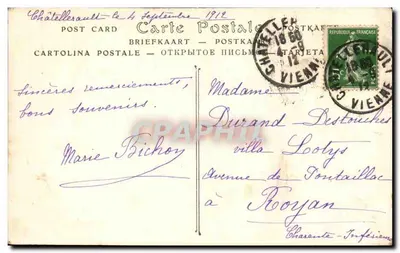 Châtellerault le 4 Septembre 1912
POST CARD Carte Postale POSTKARTE
BRIEFKAART - POSTKA
CARTOLINA POSTALE - ОТКРЫТОЕ ПИСЬМО
TARJETA
CHATELLERAULT
VIENNE
CHATELLERAULT
VIENNE
Sincères remerciements,
bons souvenirs.
Marie Bichon
Madame
Durand Destouches
villa Lotys
Avenue de Pontaillac
à
Royan
Charente-Inférieure